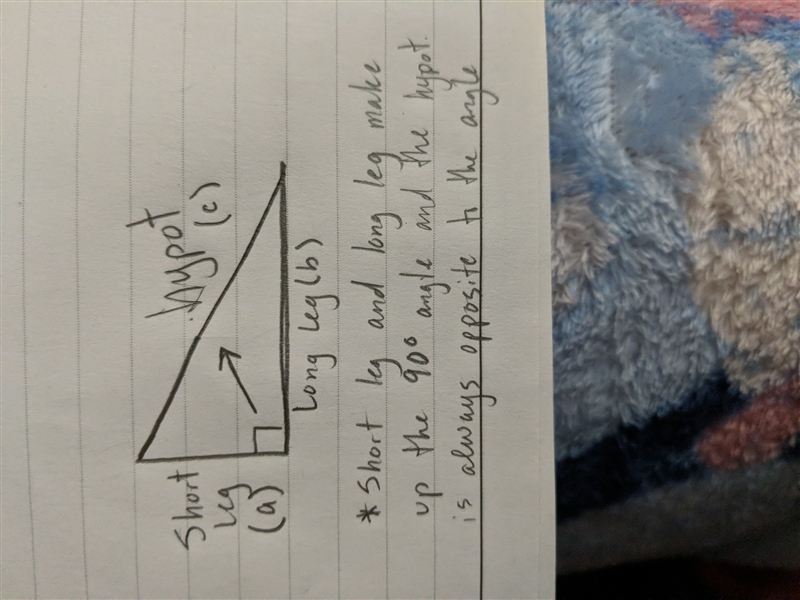 hypot
(c)
Short
leg
(a)
Long leg (b)
* Short leg and long leg make
up the 90° angle and the hypot.
is always opposite to the angle